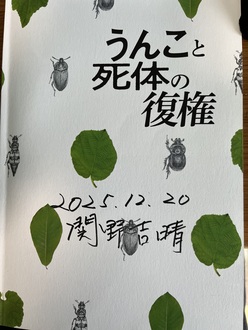 うんこと
死体の
復権
2025.12.20
関野吉晴